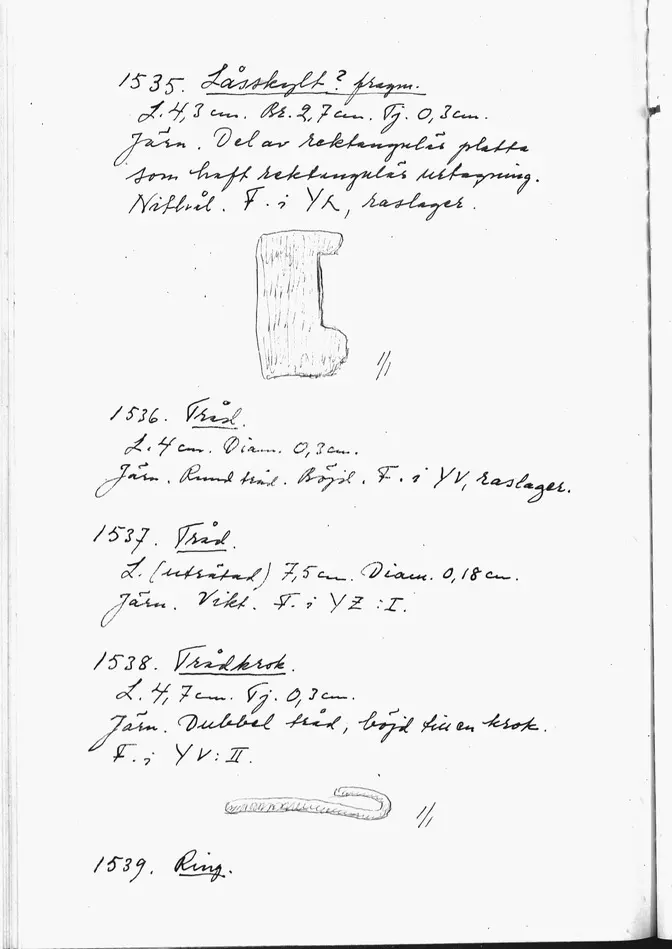 1535. Låsskylt? fragm.
L. 4,3 cm. Br. 2,7 cm. Tj. 0,3 cm.
Järn. Del av rektangulär platta
som haft rektangulär urtagning.
Nithål. F. i YX, raslager.
1/1
1536. Tråd.
L. 4 cm. Diam. 0,3 cm.
Järn. Rund tråd. Böjd. F. i YV, raslager.
1537. Tråd.
L. (uträtad) 7,5 cm. Diam. 0,18 cm.
Järn. Vikt. F. i YZ:I.
1538. Trådkrok.
L. 4,7 cm. Tj. 0,3 cm.
Järn. Dubbel tråd, böjd till en krok.
F. i YV:II.
1/1
1539. Ring.